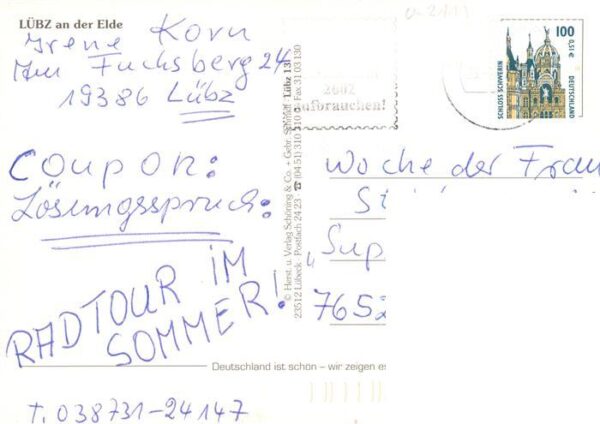 LÜBZ an der Elde
Irene Korn
Am Fuchsberg 24
19386 Lübz
Coupon:
Lösungsspruch:
RADTOUR IM
SOMMER!
T. 038731-24147
© Herst. u. Verlag Schöning & Co. + Gebr. Schmidt
23512 Lübeck · Postfach 24 23 ☎ (04 51) 310 310 Fax 31 03 130
Lübz 13
2002
aufbrauchen!
100
0,51€
SCHLOSS SCHWERIN
DEUTSCHLAND
Woche der Frau
St
„Sup
7652
Deutschland ist schön – wir zeigen es